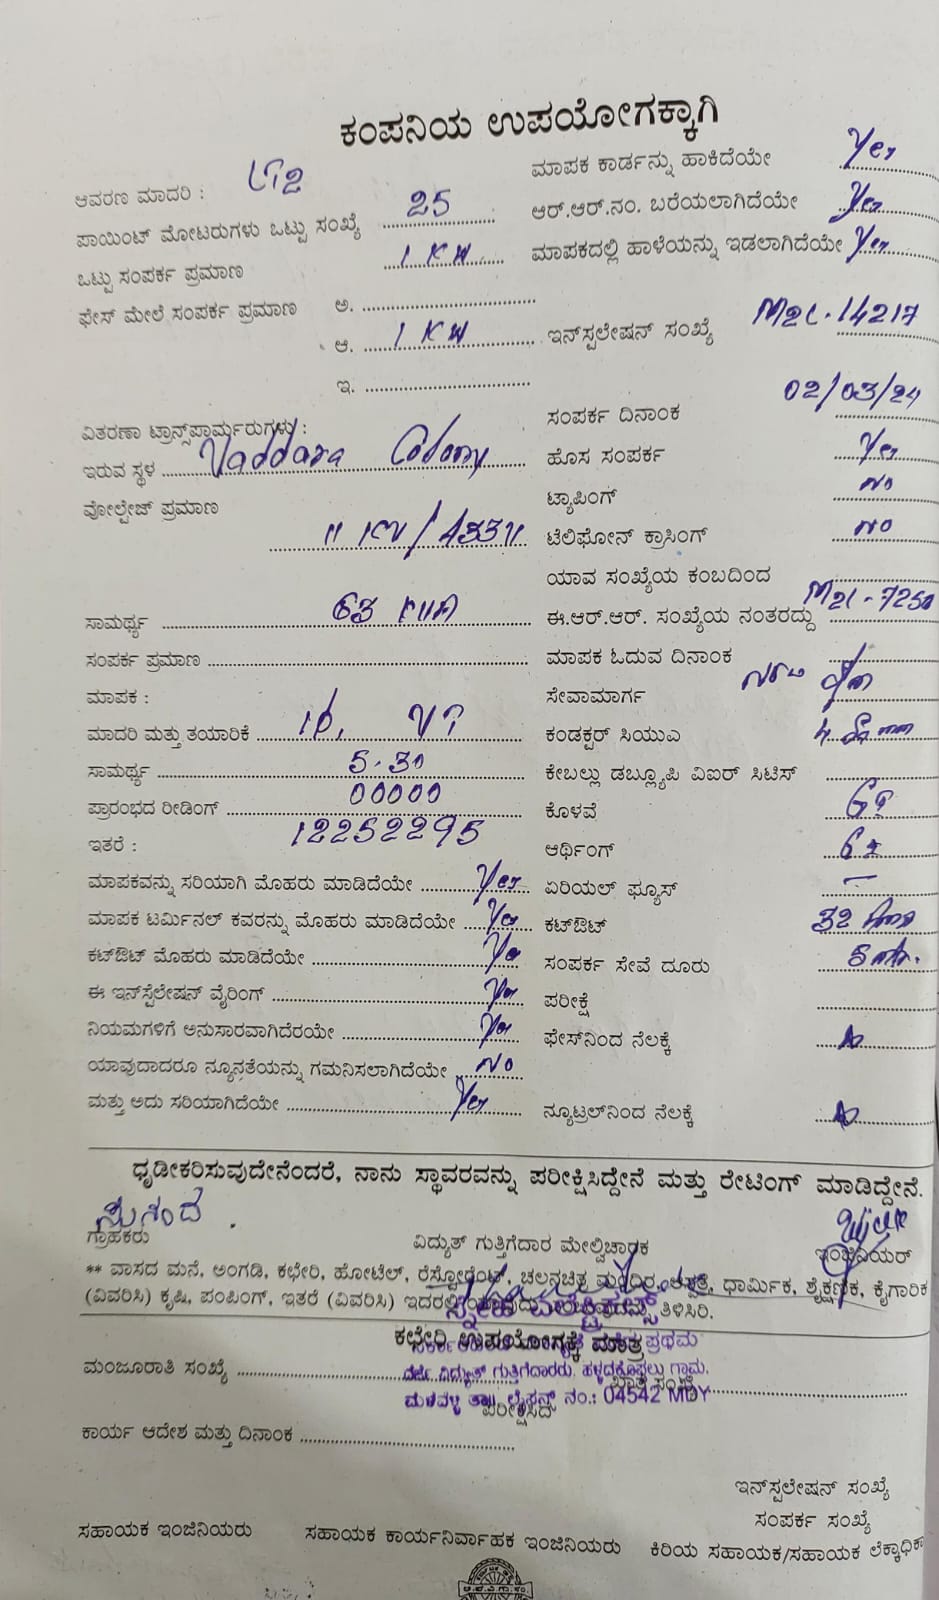 ಕಂಪನಿಯ ಉಪಯೋಗಕ್ಕಾಗಿ
ಆವರಣ ಮಾದರಿ : LT2
ಪಾಯಿಂಟ್ ಮೋಟರುಗಳು ಒಟ್ಟು ಸಂಖ್ಯೆ 25
ಒಟ್ಟು ಸಂಪರ್ಕ ಪ್ರಮಾಣ 1 KW
ಫೇಸ್ ಮೇಲೆ ಸಂಪರ್ಕ ಪ್ರಮಾಣ ಅ.
ಆ. 1 KW
ಇ.
ವಿತರಣಾ ಟ್ರಾನ್ಸ್‌ಪಾರ್ಮ್ರರುಗಳು :
ಇರುವ ಸ್ಥಳ Vaddara Colony
ವೋಲ್ಟೇಜ್ ಪ್ರಮಾಣ
11 KV / 433V
ಸಾಮರ್ಥ್ಯ 63 KVA
ಸಂಪರ್ಕ ಪ್ರಮಾಣ
ಮಾಪಕ :
ಮಾದರಿ ಮತ್ತು ತಯಾರಿಕೆ
ಸಾಮರ್ಥ್ಯ 5-30
ಪ್ರಾರಂಭದ ರೀಡಿಂಗ್ 00000
ಇತರೆ : 12252295
ಮಾಪಕವನ್ನು ಸರಿಯಾಗಿ ಮೊಹರು ಮಾಡಿದೆಯೇ Yes
ಮಾಪಕ ಟರ್ಮಿನಲ್ ಕವರನ್ನು ಮೊಹರು ಮಾಡಿದೆಯೇ Yes
ಕಟ್‌ಔಟ್ ಮೊಹರು ಮಾಡಿದೆಯೇ Yes
ಈ ಇನ್‌ಸ್ಟೆಲೇಷನ್ ವೈರಿಂಗ್ Yes
ನಿಯಮಗಳಿಗೆ ಅನುಸಾರವಾಗಿದೆರಯೇ Yes
ಯಾವುದಾದರೂ ನ್ಯೂನತೆಯನ್ನು ಗಮನಿಸಲಾಗಿದೆಯೇ NO
ಮತ್ತು ಅದು ಸರಿಯಾಗಿದೆಯೇ Yes
ಮಾಪಕ ಕಾರ್ಡನ್ನು ಹಾಕಿದೆಯೇ Yes
ಆರ್.ಆರ್.ನಂ. ಬರೆಯಲಾಗಿದೆಯೇ Yes
ಮಾಪಕದಲ್ಲಿ ಹಾಳೆಯನ್ನು ಇಡಲಾಗಿದೆಯೇ Yes
ಇನ್‌ಸ್ಟಲೇಷನ್ ಸಂಖ್ಯೆ M2L-14217
ಸಂಪರ್ಕ ದಿನಾಂಕ 02/03/24
ಹೊಸ ಸಂಪರ್ಕ Yes
ಟ್ಯಾಪಿಂಗ್ NO
ಟೆಲಿಫೋನ್ ಕ್ರಾಸಿಂಗ್ NO
ಯಾವ ಸಂಖ್ಯೆಯ ಕಂಬದಿಂದ
ಈ.ಆರ್.ಆರ್. ಸಂಖ್ಯೆಯ ನಂತರದ್ದು M2L-7250
ಮಾಪಕ ಓದುವ ದಿನಾಂಕ
ಸೇವಾಮಾರ್ಗ
ಕಂಡಕ್ಟರ್ ಸಿಯುಎ
ಕೇಬಲ್ಲು ಡಬ್ಲ್ಯೂಪಿ ವಿಐರ್ ಸಿಟಿಸ್
ಕೊಳವೆ GI
ಆರ್ಥಿಂಗ್ GI
ಏರಿಯಲ್ ಫ್ಯೂಸ್ —
ಕಟ್‌ಔಟ್ 32 Amp
ಸಂಪರ್ಕ ಸೇವೆ ದೂರು 5 mtr.
ಪರೀಕ್ಷೆ
ಫೇಸ್‌ನಿಂದ ನೆಲಕ್ಕೆ
ನ್ಯೂಟ್ರಲ್‌ನಿಂದ ನೆಲಕ್ಕೆ
ಧೃಡೀಕರಿಸುವುದೇನೆಂದರೆ, ನಾನು ಸ್ಥಾವರವನ್ನು ಪರೀಕ್ಷಿಸಿದ್ದೇನೆ ಮತ್ತು ರೇಟಿಂಗ್ ಮಾಡಿದ್ದೇನೆ.
ಗ್ರಾಹಕರು ವಿದ್ಯುತ್ ಗುತ್ತಿಗೆದಾರ ಮೇಲ್ವಿಚಾರಕ ಇಂಜಿನಿಯರ್
** ವಾಸದ ಮನೆ, ಅಂಗಡಿ, ಕಛೇರಿ, ಹೋಟೆಲ್, ರೆಸ್ಟೋರೆಂಟ್, ಚಲನಚಿತ್ರ ಮಂದಿರ, ಆಸ್ಪತ್ರೆ, ಧಾರ್ಮಿಕ, ಶೈಕ್ಷಣಿಕ, ಕೈಗಾರಿಕ
(ವಿವರಿಸಿ) ಕೃಷಿ, ಪಂಪಿಂಗ್, ಇತರೆ (ವಿವರಿಸಿ) ಇದರಲ್ಲಿ ತಿಳಿಸಿರಿ.
ಕಛೇರಿ ಉಪಯೋಗಕ್ಕೆ ಮಾತ್ರ ಪ್ರಥಮ
ಮಂಜೂರಾತಿ ಸಂಖ್ಯೆ
ದರ್ಜೆ ವಿದ್ಯುತ್ ಗುತ್ತಿಗೆದಾರರು. ಹಳ್ಳದಕೊಪ್ಪಲು ಗ್ರಾಮ.
ಮಳವಳ್ಳಿ ತಾಃ ಲೈಸೆನ್ಸ್ ನಂ.: 04542 MDY
ಕಾರ್ಯ ಆದೇಶ ಮತ್ತು ದಿನಾಂಕ
ಇನ್‌ಸ್ಟಲೇಷನ್ ಸಂಖ್ಯೆ
ಸಂಪರ್ಕ ಸಂಖ್ಯೆ
ಸಹಾಯಕ ಇಂಜಿನಿಯರು ಸಹಾಯಕ ಕಾರ್ಯನಿರ್ವಾಹಕ ಇಂಜಿನಿಯರು ಕಿರಿಯ ಸಹಾಯಕ/ಸಹಾಯಕ ಲೆಕ್ಕಾಧಿಕಾ